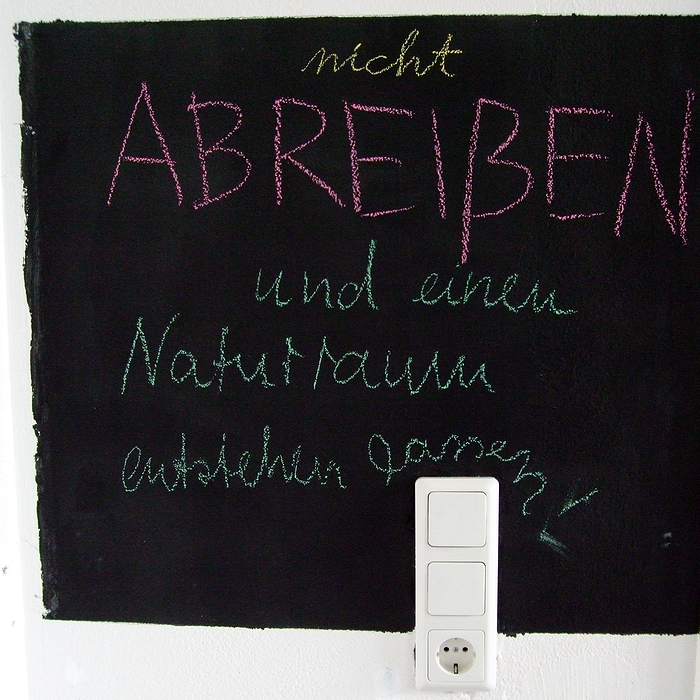 nicht
ABREIßEN
und einen
Naturraum
entstehen lassen